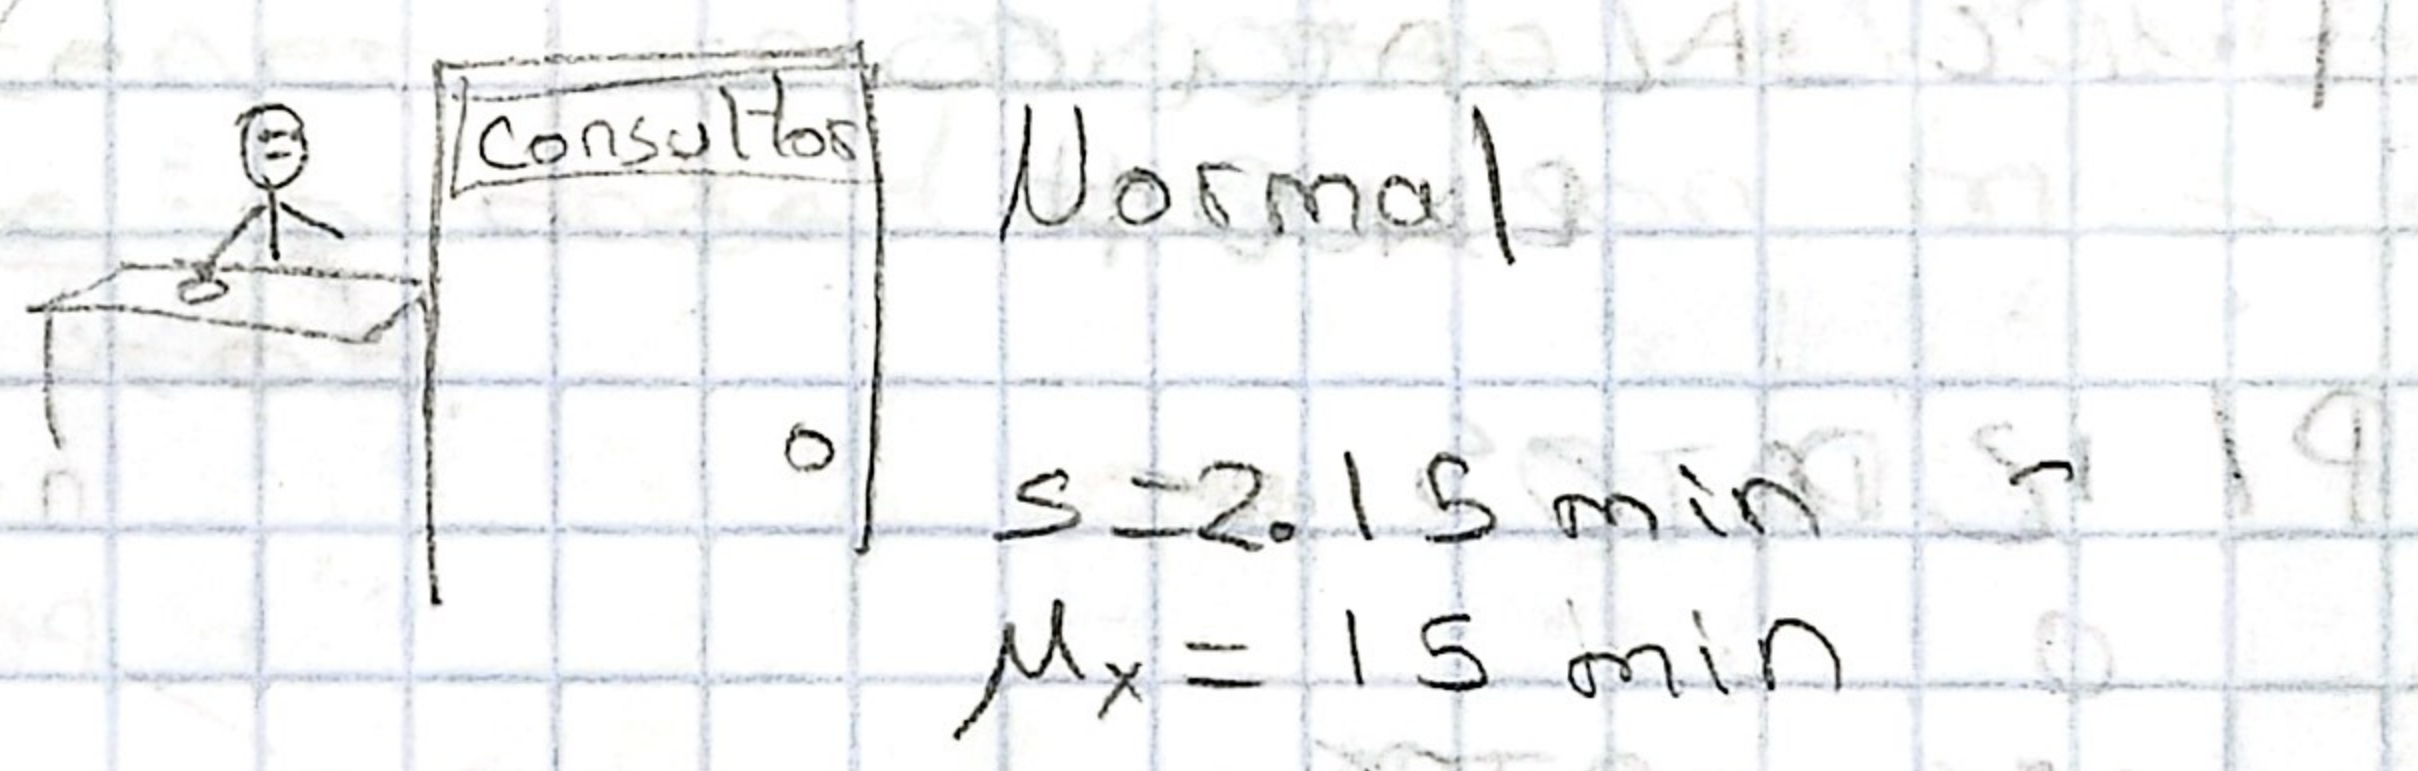 Consultor
Normal
s=2.15 min
μx = 15 min